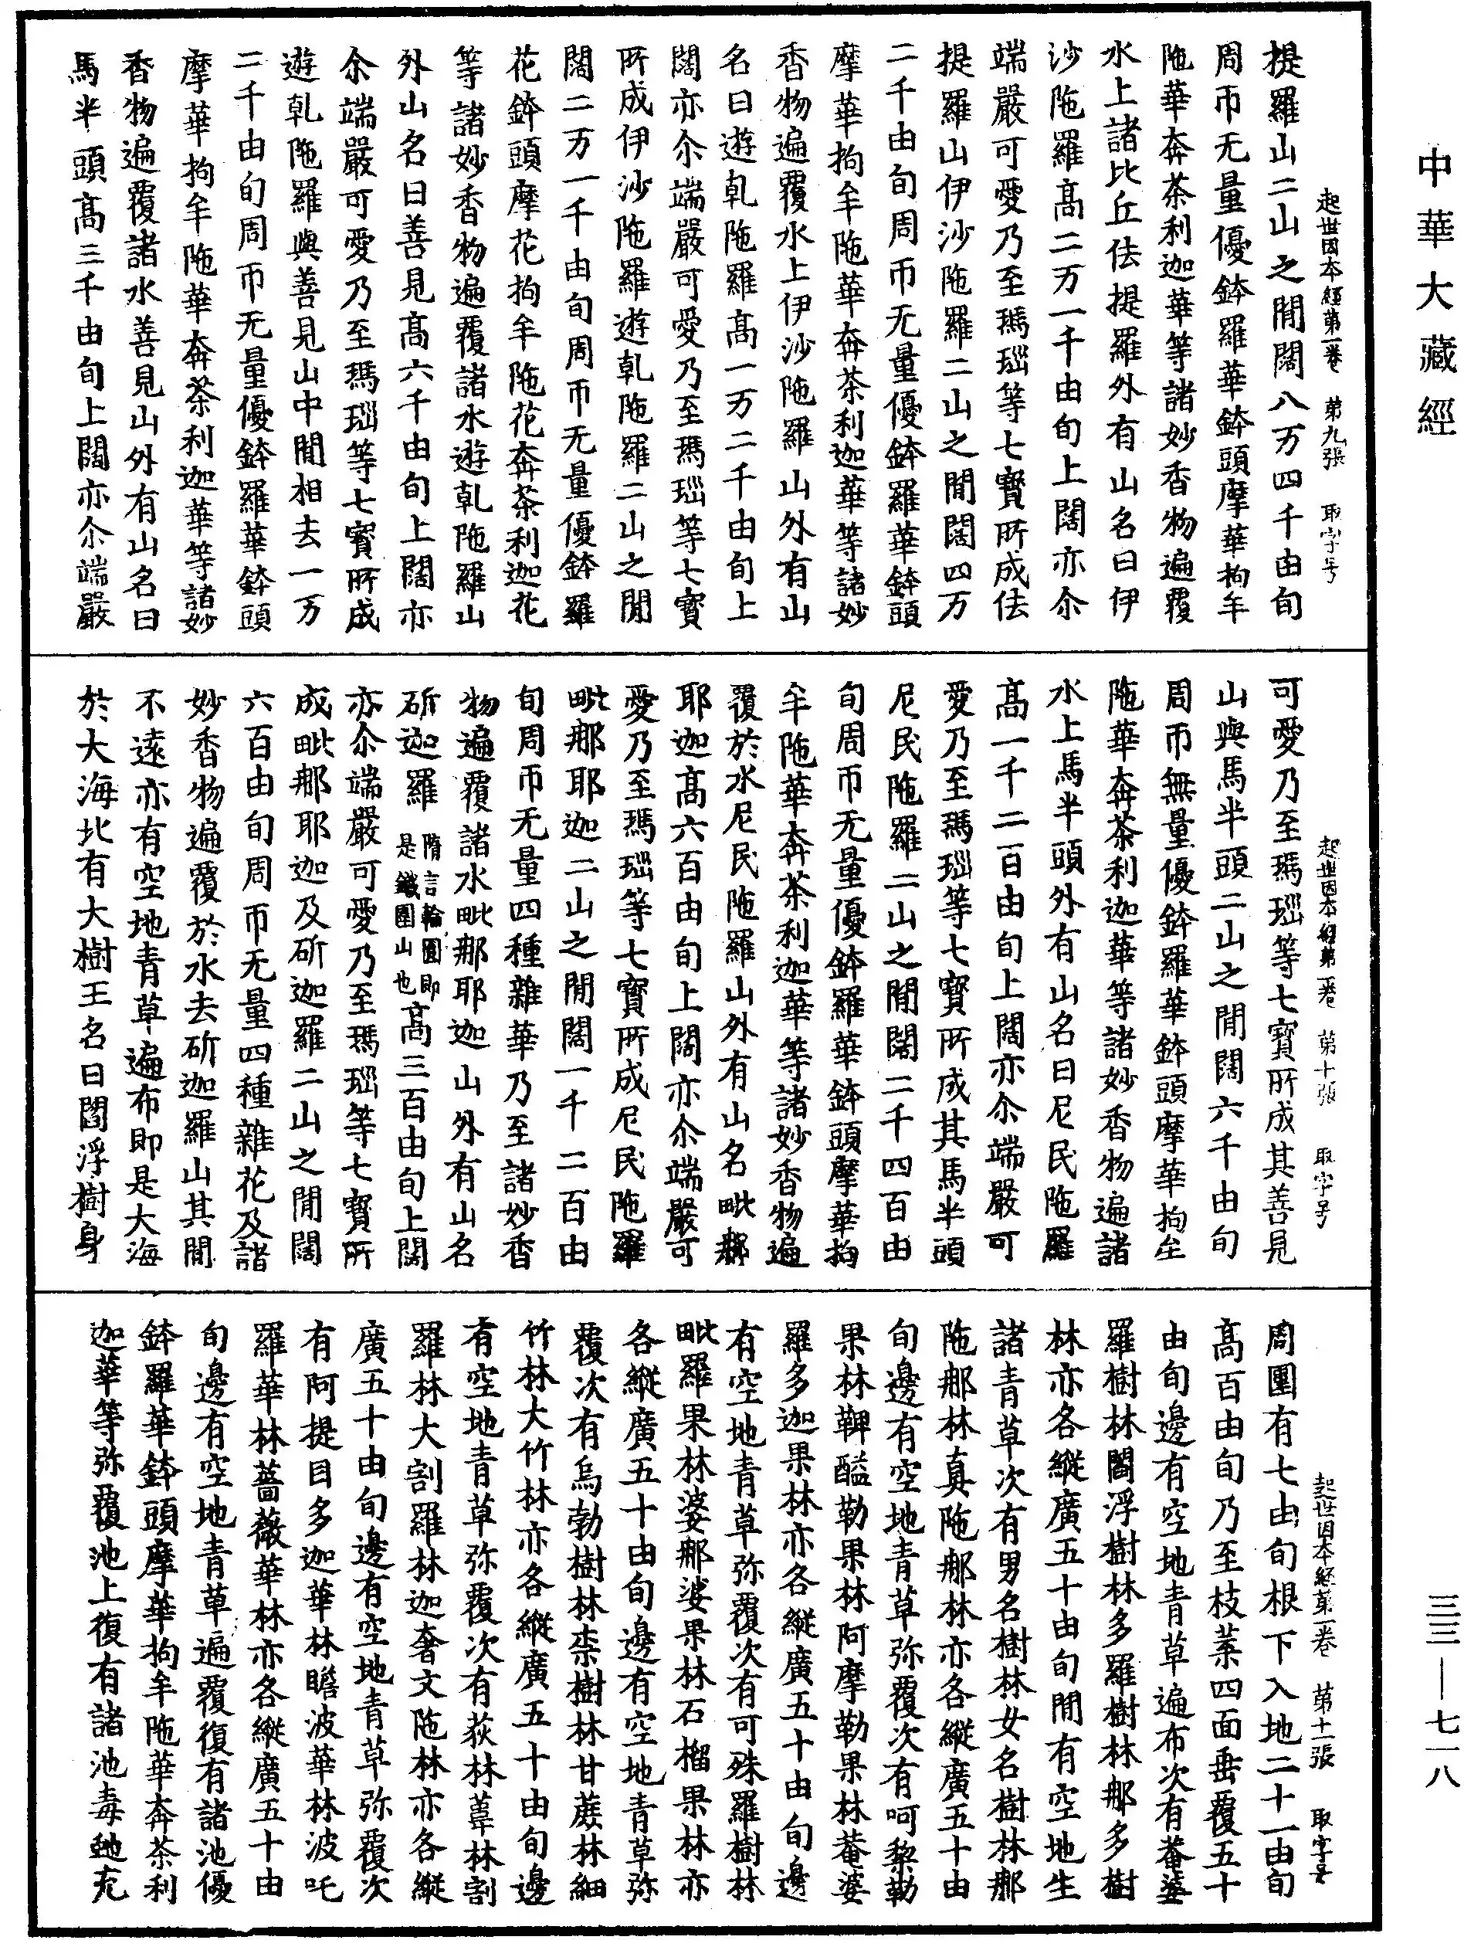 中華大藏經
起世因本經第一卷 第九張 取字号
提羅山二山之閒闊八万四千由旬
周帀无量優鉢羅華鉢頭摩華拘牟
陁華奔茶利迦華等諸妙香物遍覆
水上諸比丘佉提羅外有山名曰伊
沙陁羅髙二万一千由旬上闊亦尒
端嚴可愛乃至瑪瑙等七寳所成佉
提羅山伊沙陁羅二山之閒闊四万
二千由旬周帀无量優鉢羅華鉢頭
摩華拘牟陁華奔茶利迦華等諸妙
香物遍覆水上伊沙陁羅山外有山
名曰遊乹陁羅髙一万二千由旬上
闊亦尒端嚴可愛乃至瑪瑙等七寳
所成伊沙陁羅遊乹陁羅二山之閒
闊二万一千由旬周帀无量優鉢羅
花鉢頭摩花拘牟陁花奔茶利迦花
等諸妙香物遍覆諸水遊乹陁羅山
外山名曰善見髙六千由旬上闊亦
尒端嚴可愛乃至瑪瑙等七寳所成
遊乹陁羅與善見山中閒相去一万
二千由旬周帀无量優鉢羅華鉢頭
摩華拘牟陁華奔茶利迦華等諸妙
香物遍覆諸水善見山外有山名曰
馬半頭髙三千由旬上闊亦尒端嚴
起世因本經第一卷 第十張 取字号
可愛乃至瑪瑙等七寳所成其善見
山與馬半頭二山之閒闊六千由旬
周帀無量優鉢羅華鉢頭摩華拘牟
陁華奔茶利迦華等諸妙香物遍諸
水上馬半頭外有山名曰尼民陁羅
髙一千二百由旬上闊亦尒端嚴可
愛乃至瑪瑙等七寳所成其馬半頭
尼民陁羅二山之閒闊二千四百由
旬周帀无量優鉢羅華鉢頭摩華拘
牟陁華奔茶利迦華等諸妙香物遍
覆於水尼民陁羅山外有山名毗那
耶迦髙六百由旬上闊亦尒端嚴可
愛乃至瑪瑙等七寳所成尼民陁羅
毗那耶迦二山之閒闊一千二百由
旬周帀无量四種雜華乃至諸妙香
物遍覆諸水毗那耶迦山外有山名
斫迦羅隋言輪圓即是鐵圍山也髙三百由旬上闊
亦尒端嚴可愛乃至瑪瑙等七寳所
成毗那耶迦及斫迦羅二山之閒闊
六百由旬周帀无量四種雜花及諸
妙香物遍覆於水去斫迦羅山其閒
不遠亦有空地青草遍布即是大海
於大海北有大樹王名曰閻浮樹身
起世因本經第一卷 第十一張 取字号
周圍有七由旬根下入地二十一由旬
髙百由旬乃至枝葉四面垂覆五十
由旬邊有空地青草遍布次有菴婆
羅樹林閻浮樹林多羅樹林那多樹
林亦各縱廣五十由旬閒有空地生
諸青草次有男名樹林女名樹林那
陁那林真陁那林亦各縱廣五十由
旬邊有空地青草弥覆次有呵黎勒
果林鞞醯勒果林阿摩勒果林菴婆
羅多迦果林亦各縱廣五十由旬邊
有空地青草弥覆次有可殊羅樹林
毗羅果林婆那婆果林石榴果林亦
各縱廣五十由旬邊有空地青草弥
覆次有烏勃樹林柰樹林甘蔗林細
竹林大竹林亦各縱廣五十由旬邊
有空地青草弥覆次有荻林葦林割
羅林大割羅林迦奢文陁林亦各縱
廣五十由旬邊有空地青草弥覆次
有阿提目多迦華林瞻波華林波吒
羅華林薔薇華林亦各縱廣五十由
旬邊有空地青草遍覆復有諸池優
鉢羅華鉢頭摩華拘牟陁華奔茶利
迦華等弥覆池上復有諸池毒虵充
三三—七一八